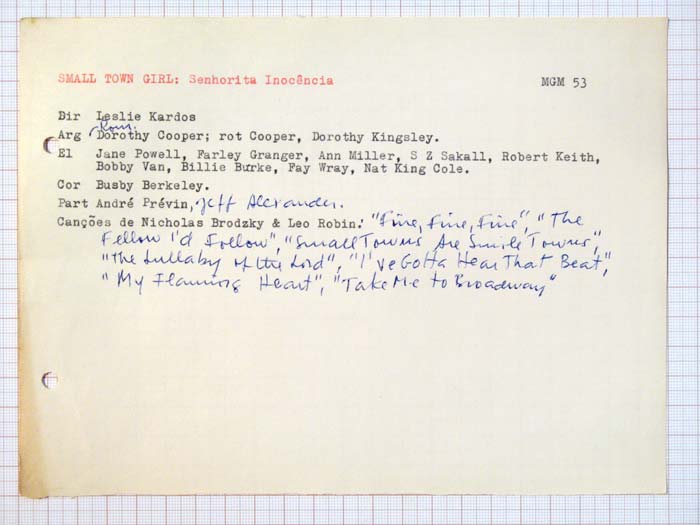 SMALL TOWN GIRL: Senhorita Inocência MGM 53
Dir Leslie Kardos
Rom.
Arg Dorothy Cooper; rot Cooper, Dorothy Kingsley.
El Jane Powell, Farley Granger, Ann Miller, S Z Sakall, Robert Keith,
Bobby Van, Billie Burke, Fay Wray, Nat King Cole.
Cor Busby Berkeley.
Part André Prévin, Jeff Alexander.
Canções de Nicholas Brodzky & Leo Robin: "Fine, Fine, Fine", "The
Fellow I'd Follow", "Small Towns Are Smile Towns",
"The Lullaby of the Lord", "I've Gotta Hear That Beat",
"My Flaming Heart", "Take Me to Broadway"